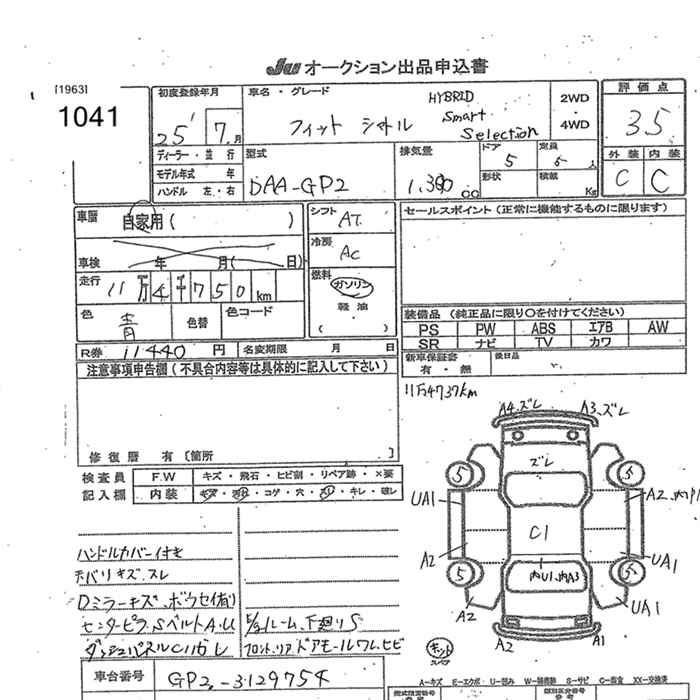 JU オークション出品申込書
[1963]
1041
初度登録年月
25' 7月
車名・グレード
フィット シャトル
HYBRID
Smart
Selection
2WD
4WD
評価点
3.5
外装 内装
C C
ディーラー・並行
モデル年式 年
ハンドル 左・右
型式
DAA-GP2
排気量
1.300cc
ドア
5
定員
5人
形状
積載
Kg
車歴
自家用( )
車検 年 月( 日)
走行
11万4千750km
色
青
色替
色コード
R券 11440円
名変期限 月 日
シフト
AT
冷房
AC
燃料
ガソリン
軽油
( )
セールスポイント (正常に機能するものに限ります)
装備品 (純正品に限り○を付けてください)
PS PW ABS エアB AW
SR ナビ TV カワ
新車保証書
有・無
後日品
注意事項申告欄(不具合内容等は具体的に記入して下さい)
修復歴 有〔箇所 〕
11万4737km
検査員
記入欄
F.W
キズ・飛石・ヒビ割・リペア跡・×要
内装
キズ・汚れ・コゲ・穴・スレ・キレ・破レ
ハンドルカバー付き
天バリキズ、スレ
Dミラーキズ、ボウセイ(有)
センターピラ、SベルトA.U
ダッシュパネルCハガレ
E/gルーム、下廻りS
フロント、リアドアモールワレ、ヒビ
A4、ズレ
A3、ズレ
ズレ
5
5
UA1
A2、内P1
C1
A2
UA1
5
内U1、内A3
5
A2
UA1
A2
A1
キット
スペア
車台番号
GP2-3129754
A-キズ E-エクボ U-凹み W-補修跡 S-サビ C-腐食 XX-交換済